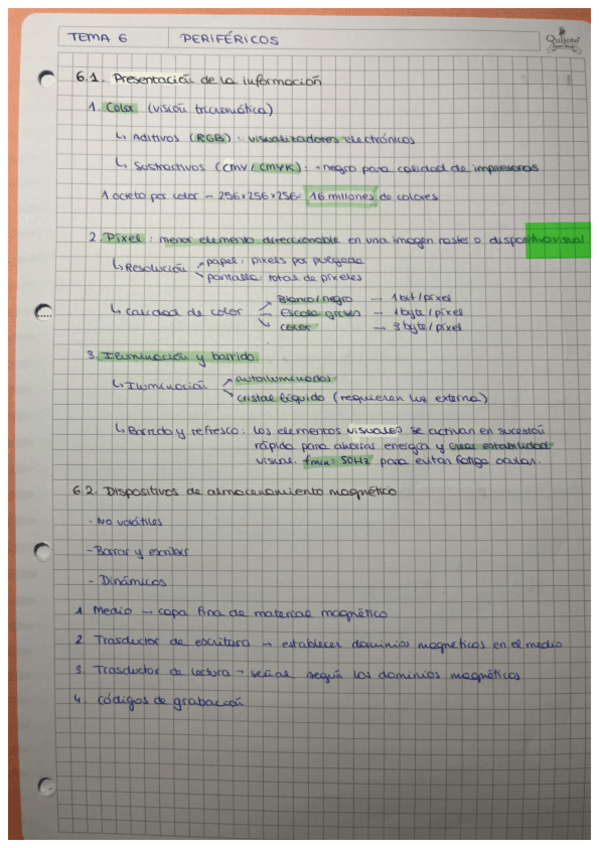 TEMA 6 PERIFÉRICOS
Quijote
6.1. Presentación de la información
1. Color (visión tricromática)
↳ Aditivos (RGB): visualizadores electrónicos
↳ Sustractivos (CMY/CMYK): + negro para calidad de impresoras
1 octeto por color → 256×256×256 - 16 millones de colores
2. Píxel: menor elemento direccionable en una imagen raster o dispositivo visual.
↳ Resolución papel: pixels por pulgada
pantalla: total de píxeles
Blanco/negro → 1 bit/píxel
↳ Calidad de color Escala grises → 1byte/píxel
color → 3 byte/píxel
3. Iluminación y barrido
↳ Iluminación autoiluminados
cristal líquido (requieren luz externa)
↳ Barrido y refresco: los elementos visuales se activan en sucesión
rápida para ahorrar energía y crear estabilidad
visual. fmin = 50Hz para evitar fatiga ocular.
6.2. Dispositivos de almacenamiento magnético
- No volátiles
- Borrar y escribir
- Dinámicos
1 Medio → capa fina de material magnético
2 Trasductor de escritura → establecer dominios magnéticos en el medio
3. Trasductor de lectura → señal según los dominios magnéticos
4. Códigos de grabación